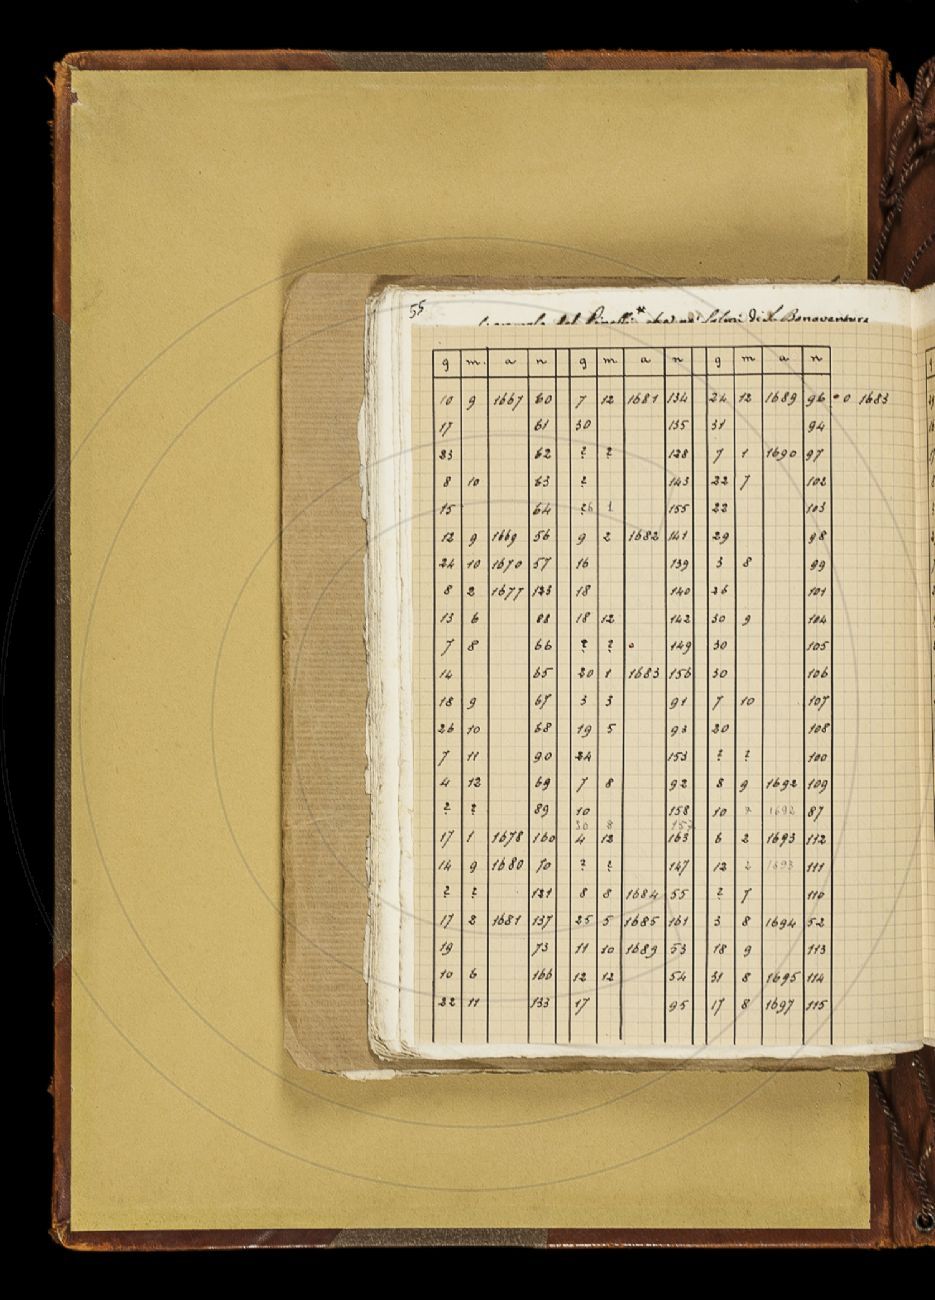 55
Bonaventura
g m. a n g m a n g m a n
10 9 1667 60 7 12 1681 134 24 12 1689 96 0 1683
17 61 30 135 31 94
23 62 ? ? 128 7 1 1690 97
8 10 63 ? 143 22 7 102
15 64 26 1 155 22 103
12 9 1669 56 9 2 1682 141 29 98
24 10 1670 57 16 139 3 8 99
8 2 1677 123 18 140 26 101
13 6 88 18 12 142 30 9 104
7 8 66 ? ? 149 30 105
14 65 20 1 1683 156 30 106
18 9 67 3 3 91 7 10 107
26 10 68 19 5 93 20 108
7 11 90 24 153 ? ? 100
4 12 69 7 8 92 8 9 1692 109
? ? 89 10 158 10 1692 87
30 8 157
17 1 1678 160 4 12 163 6 2 1693 112
14 9 1680 70 ? ? 147 12 2 1693 111
? ? 121 8 8 1684 55 ? 7 110
17 2 1681 137 25 5 1685 161 3 8 1694 52
19 73 11 10 1689 53 18 9 113
10 6 166 12 12 54 31 8 1695 114
22 11 133 17 95 17 8 1697 115